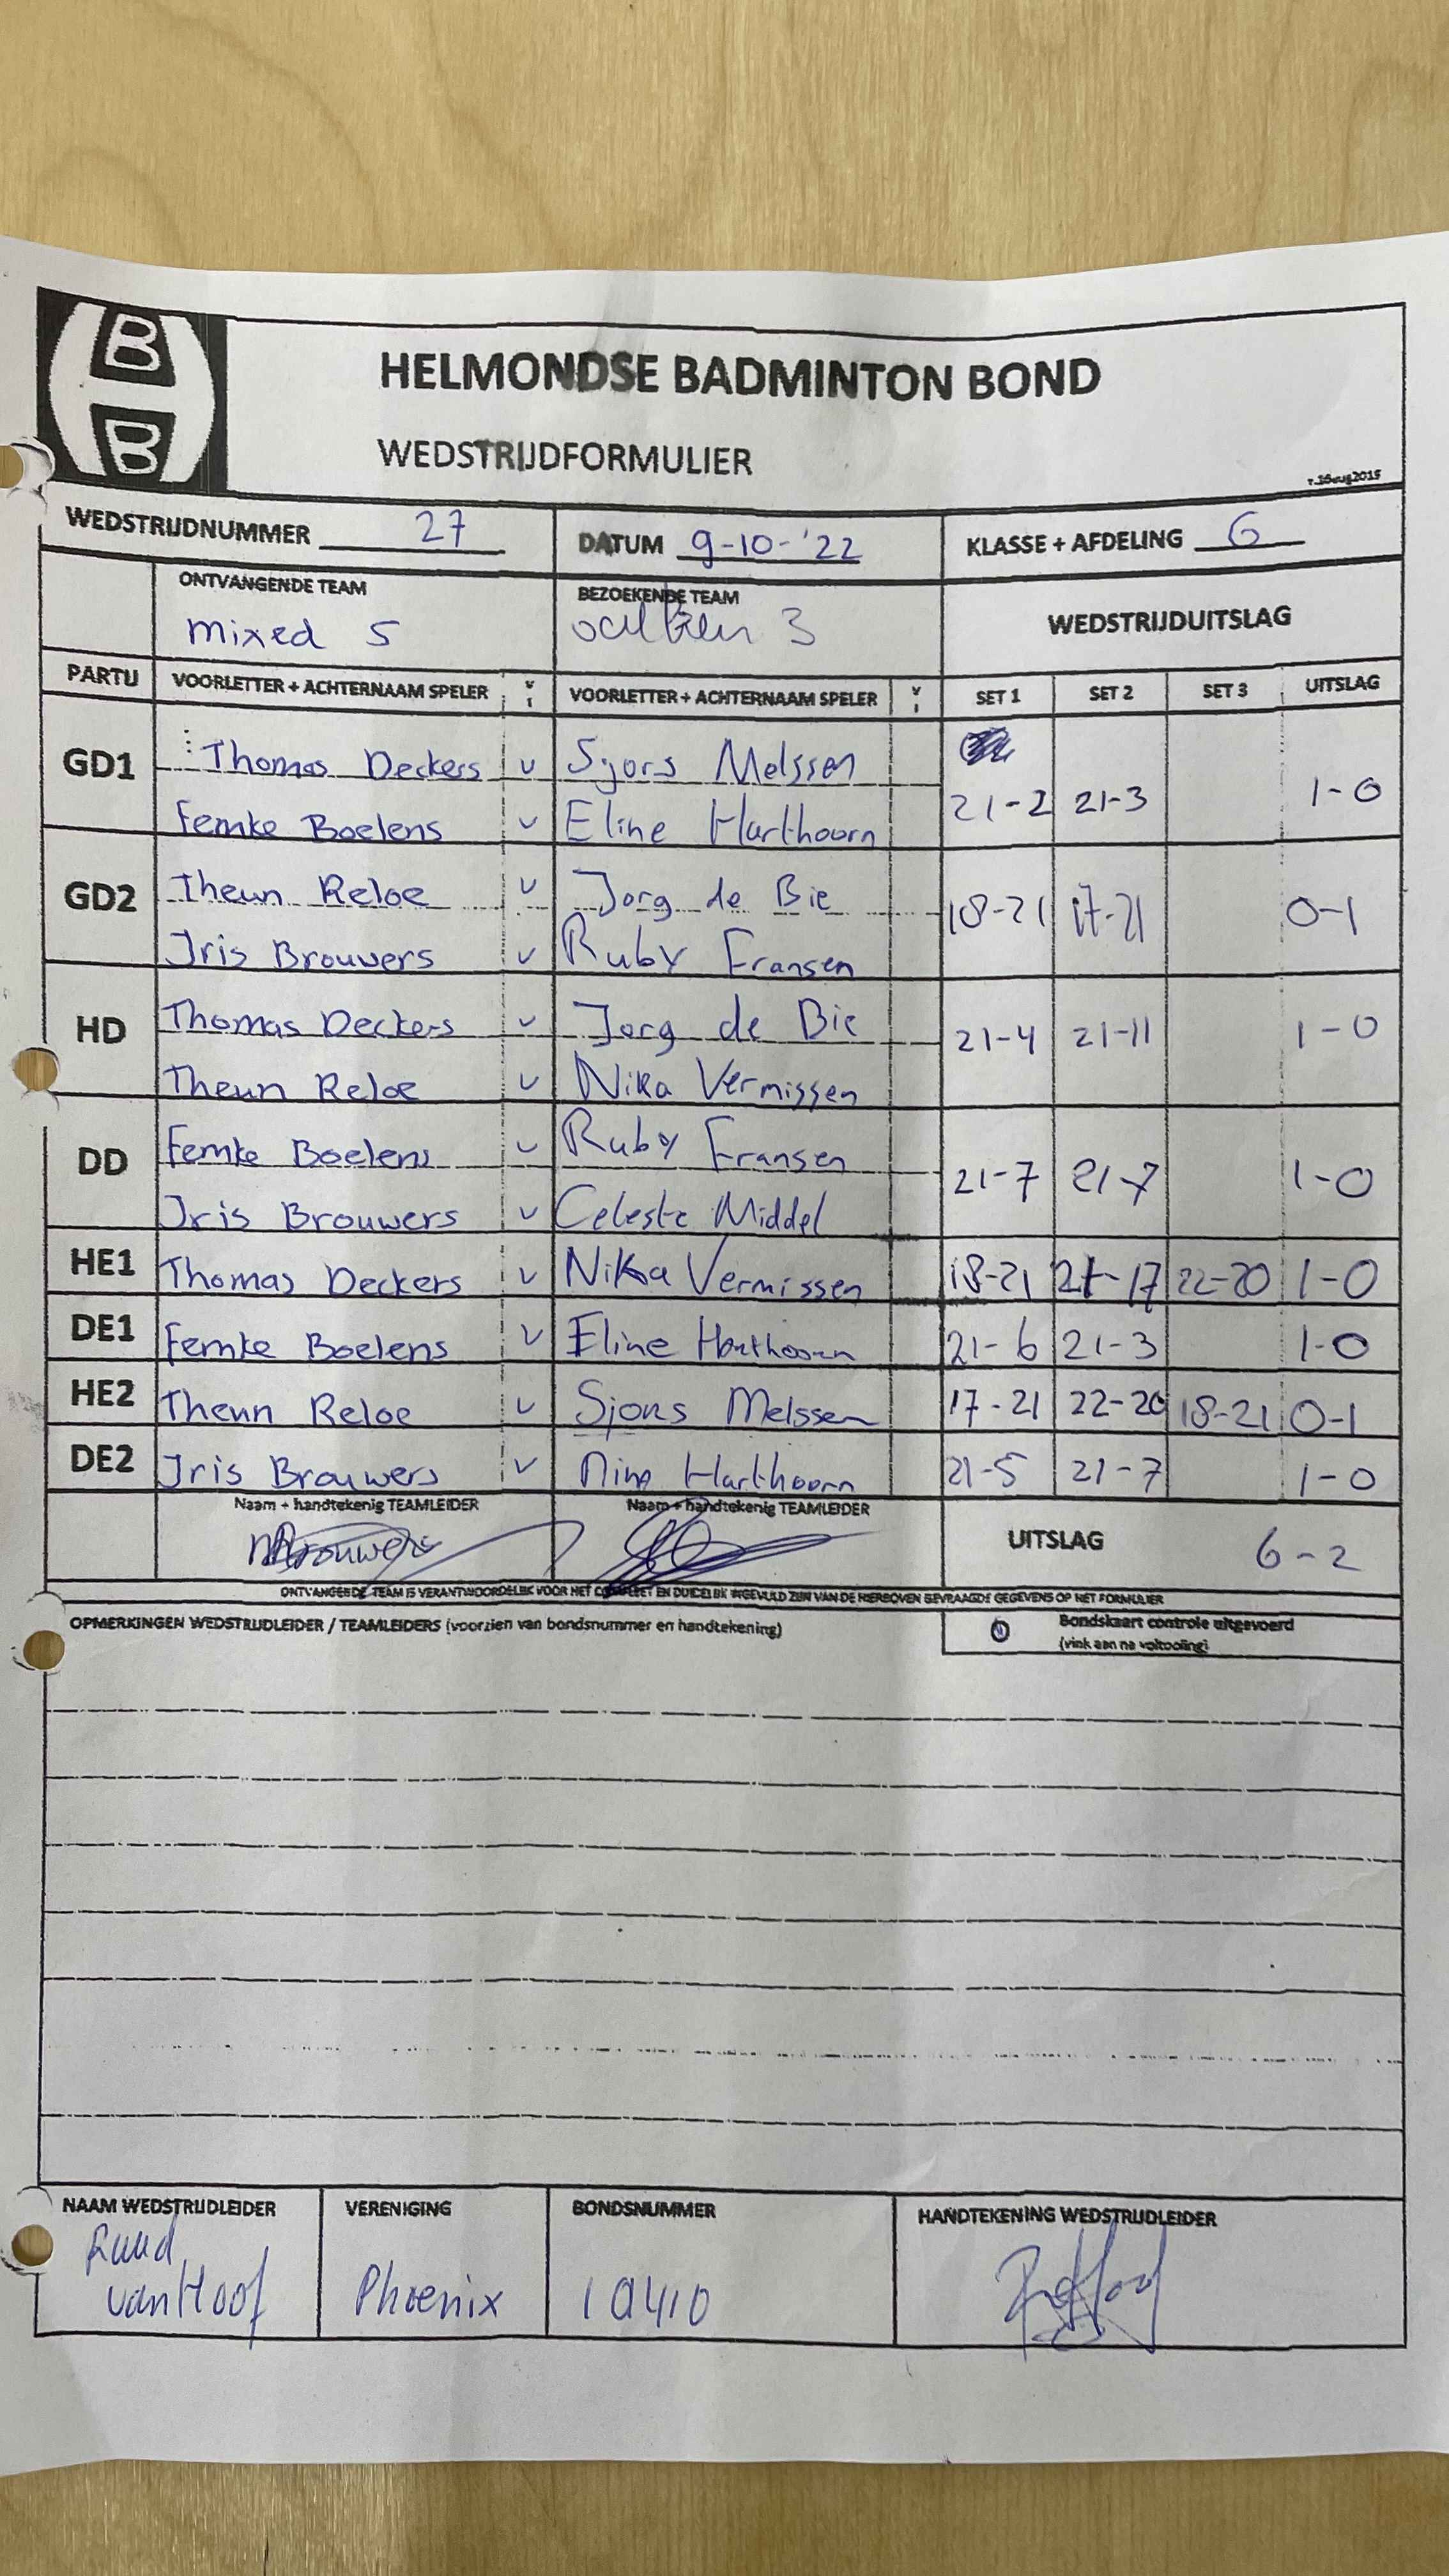 B
B
HELMONDSE BADMINTON BOND
WEDSTRIJDFORMULIER
v.16aug2015
WEDSTRIJDNUMMER 27 DATUM 9-10-'22 KLASSE + AFDELING G
ONTVANGENDE TEAM BEZOEKENDE TEAM WEDSTRIJDUITSLAG
mixed 5 3
PARTIJ VOORLETTER + ACHTERNAAM SPELER V I VOORLETTER + ACHTERNAAM SPELER V I SET 1 SET 2 SET 3 UITSLAG
GD1 Thomas Deckers v Sjors Melssen
Femke Boelens v Eline Harthoorn 21-2 21-3 1-0
GD2 Theun Reloe v Jorg de Bie 18-21 17-21 0-1
Iris Brouwers v Ruby Fransen
HD Thomas Deckers v Jorg de Bie 21-4 21-11 1-0
Theun Reloe v Nika Vermissen
DD Femke Boelens v Ruby Fransen 21-7 21-7 1-0
Iris Brouwers v Celeste Middel
HE1 Thomas Deckers v Nika Vermissen 18-21 21-17 22-20 1-0
DE1 Femke Boelens v Eline Harthoorn 21-6 21-3 1-0
HE2 Theun Reloe v Sjors Melssen 17-21 22-20 18-21 0-1
DE2 Iris Brouwers v Nina Harthoorn 21-5 21-7 1-0
Naam + handtekenig TEAMLEIDER Naam + handtekenig TEAMLEIDER
Brouwers UITSLAG 6-2
ONTVANGENDE TEAM IS VERANTWOORDELIJK VOOR HET COMPLEET EN DUIDELIJK INGEVULD ZIJN VAN DE HIERBOVEN GEVRAAGDE GEGEVENS OP HET FORMULIER
OPMERKINGEN WEDSTRIJDLEIDER / TEAMLEIDERS (voorzien van bondsnummer en handtekening) Bondskaart controle uitgevoerd
(vink aan na voltooiing)
NAAM WEDSTRIJDLEIDER VERENIGING BONDSNUMMER HANDTEKENING WEDSTRIJDLEIDER
Ruud
van Hoof Phoenix 10410